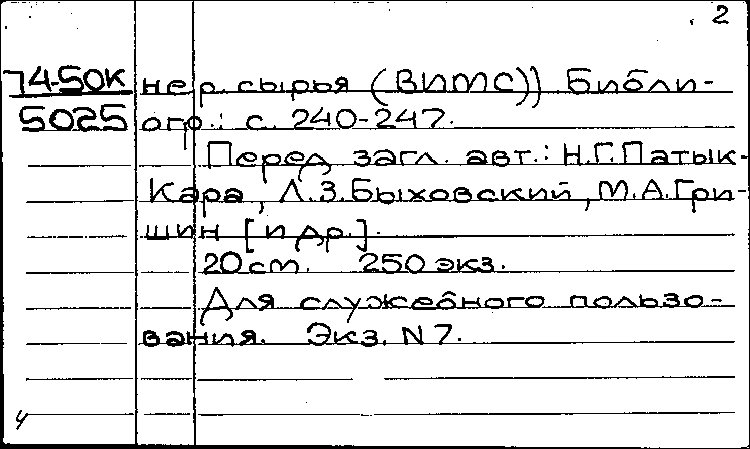 2
74-50к нер. сырья (ВИМС)) Библи-
5025 огр.: с. 240-247.
Перед загл. авт.: Н.Г.Патык-
Кара, Л.З.Быховский, М.А.Гри-
шин [и др.].
20 cm. 250 экз.
Для служебного пользо-
вания. Экз. N 7.
4